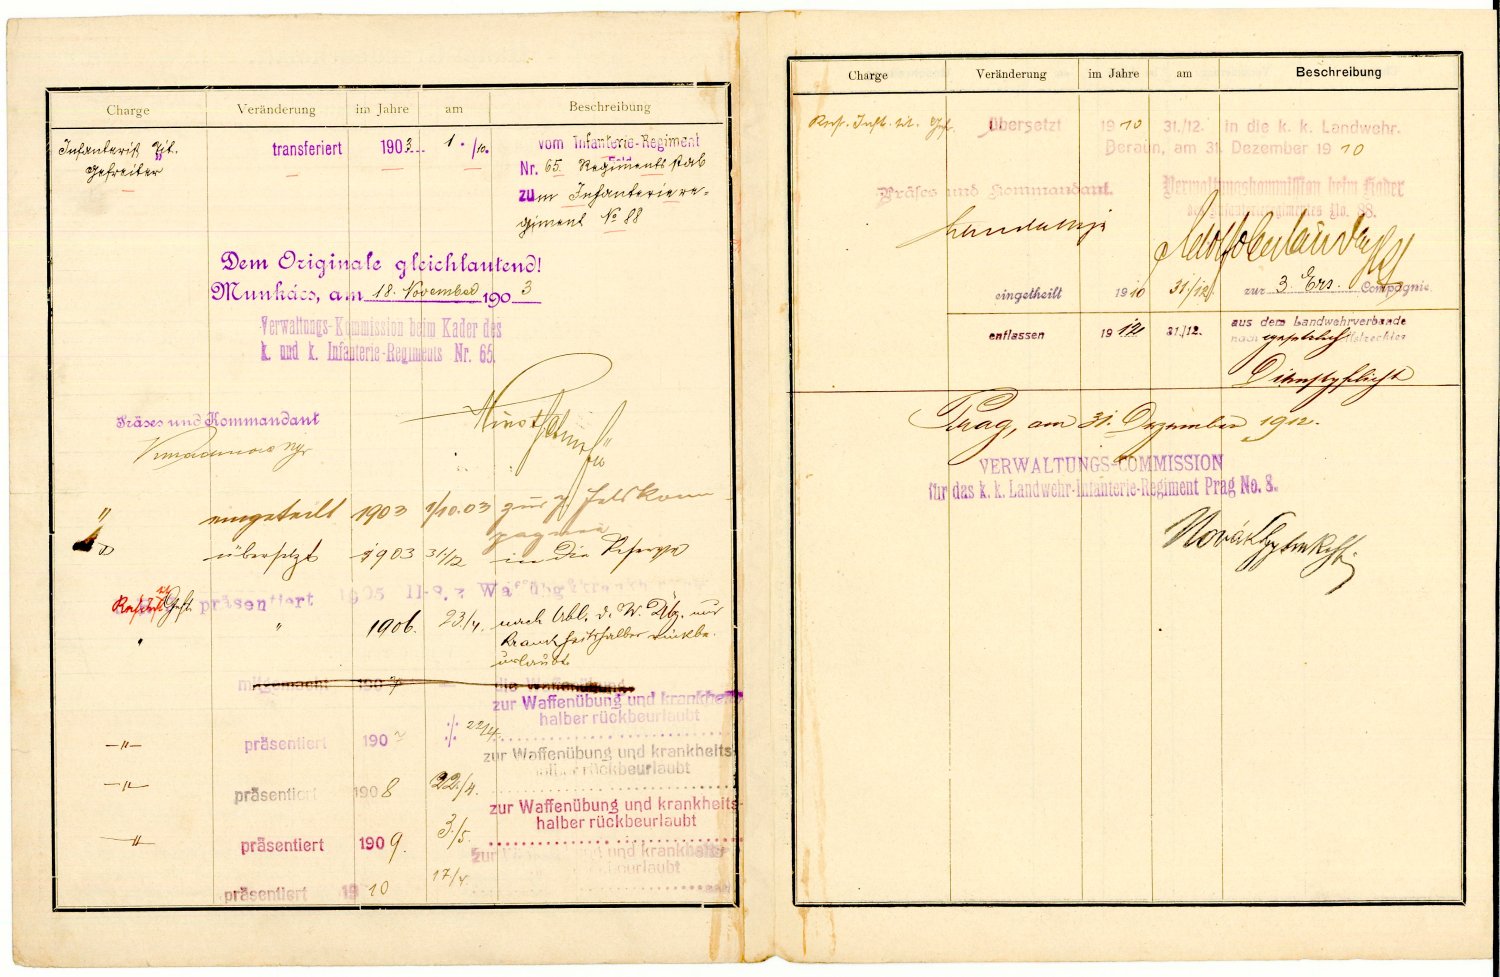 Charge Veränderung im Jahre am Beschreibung
Infanterist Tit. transferiert 1903 1./10. vom Infanterie-Regiment
Gefreiter Nr. 65. Regimentsstab
zum Infanteriere-
giment No 88
Dem Originale gleichlautend!
Munkács, am 18. November 1903
Verwaltungs-Kommission beim Kader des
k. und k. Infanterie-Regiments Nr. 65.
Präses und Kommandant
" eingeteilt 1903 1/10.03 zur 7. Feldkom-
pagnie
übersetzt 1903 31/12 in die Reserve
präsentiert 1905 Waffenübg
" " 1906. 23./4. nach Abl. d. W. Übg. und
krankheitshalber rückbe-
urlaubt.
mitgemacht 190 die Waffenübung
zur Waffenübung und krankheits-
halber rückbeurlaubt
-"- präsentiert 190 22/4.
zur Waffenübung und krankheits-
halber rückbeurlaubt
-"- präsentiert 1908 22./4.
zur Waffenübung und krankheits-
halber rückbeurlaubt
-"- präsentiert 1909. 3./5.
zur Waffenübung und krankheits-
halber rückbeurlaubt
präsentiert 1910 17/4
Charge Veränderung im Jahre am Beschreibung
Res. Inft. tit. Gef. übersetzt 1910 31./12. in die k. k. Landwehr.
Beraun, am 31. Dezember 1910
Präses und Kommandant. Verwaltungskommission beim Kader
des Infanterieregimentes No. 88.
eingetheilt 1910 31./12. zur 3. Ers. Compagnie.
entlassen 1912 31./12. aus dem Landwehrverbande
nach gesetzlich
Dienstpflicht
Prag, am 31. Dezember 1912.
VERWALTUNGS-COMMISSION
für das k. k. Landwehr-Infanterie-Regiment Prag No. 8.
Novák